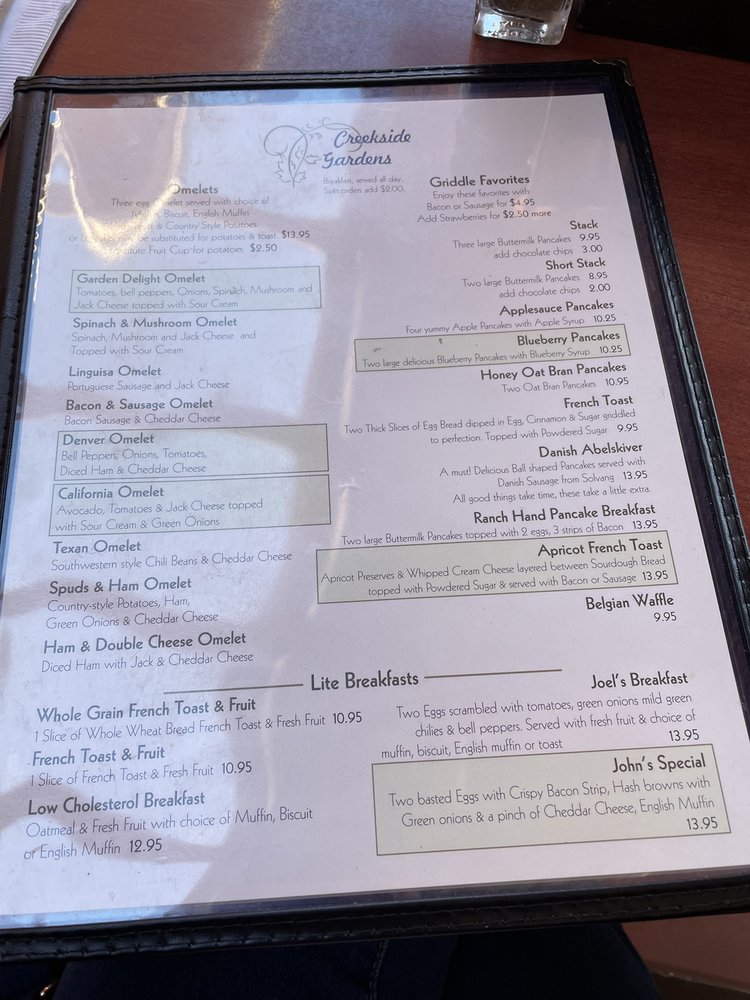 Creekside
Gardens
Breakfast, served all day.
Split orders add $2.00.
Omelets
Three egg Omelet served with choice of
Muffin, Biscuit, English Muffin
& Country Style Potatoes
be substituted for potatoes & toast $13.95
Fruit Cup for potatoes $2.50
Garden Delight Omelet
Tomatoes, bell peppers, Onions, Spinach, Mushroom and
Jack Cheese topped with Sour Cream
Spinach & Mushroom Omelet
Spinach, Mushroom and Jack Cheese and
Topped with Sour Cream
Linguisa Omelet
Portuguese Sausage and Jack Cheese
Bacon & Sausage Omelet
Bacon Sausage & Cheddar Cheese
Denver Omelet
Bell Peppers, Onions, Tomatoes,
Diced Ham & Cheddar Cheese
California Omelet
Avocado, Tomatoes & Jack Cheese topped
with Sour Cream & Green Onions
Texan Omelet
Southwestern style Chili Beans & Cheddar Cheese
Spuds & Ham Omelet
Country-style Potatoes, Ham,
Green Onions & Cheddar Cheese
Ham & Double Cheese Omelet
Diced Ham with Jack & Cheddar Cheese
Griddle Favorites
Enjoy these favorites with
Bacon or Sausage for $4.95
Add Strawberries for $2.50 more
Stack
Three large Buttermilk Pancakes 9.95
add chocolate chips 3.00
Short Stack
Two large Buttermilk Pancakes 8.95
add chocolate chips 2.00
Applesauce Pancakes
Four yummy Apple Pancakes with Apple Syrup 10.25
Blueberry Pancakes
Two large delicious Blueberry Pancakes with Blueberry Syrup 10.25
Honey Oat Bran Pancakes
Two Oat Bran Pancakes 10.95
French Toast
Two Thick Slices of Egg Bread dipped in Egg, Cinnamon & Sugar griddled
to perfection. Topped with Powdered Sugar 9.95
Danish Abelskiver
A must! Delicious Ball shaped Pancakes served with
Danish Sausage from Solvang 13.95
All good things take time, these take a little extra.
Ranch Hand Pancake Breakfast
Two large Buttermilk Pancakes topped with 2 eggs, 3 strips of Bacon 13.95
Apricot French Toast
Apricot Preserves & Whipped Cream Cheese layered between Sourdough Bread
topped with Powdered Sugar & served with Bacon or Sausage 13.95
Belgian Waffle
9.95
Lite Breakfasts
Whole Grain French Toast & Fruit
1 Slice of Whole Wheat Bread French Toast & Fresh Fruit 10.95
French Toast & Fruit
1 Slice of French Toast & Fresh Fruit 10.95
Low Cholesterol Breakfast
Oatmeal & Fresh Fruit with choice of Muffin, Biscuit
or English Muffin 12.95
Joel's Breakfast
Two Eggs scrambled with tomatoes, green onions mild green
chilies & bell peppers. Served with fresh fruit & choice of
muffin, biscuit, English muffin or toast 13.95
John's Special
Two basted Eggs with Crispy Bacon Strip, Hash browns with
Green onions & a pinch of Cheddar Cheese, English Muffin
13.95